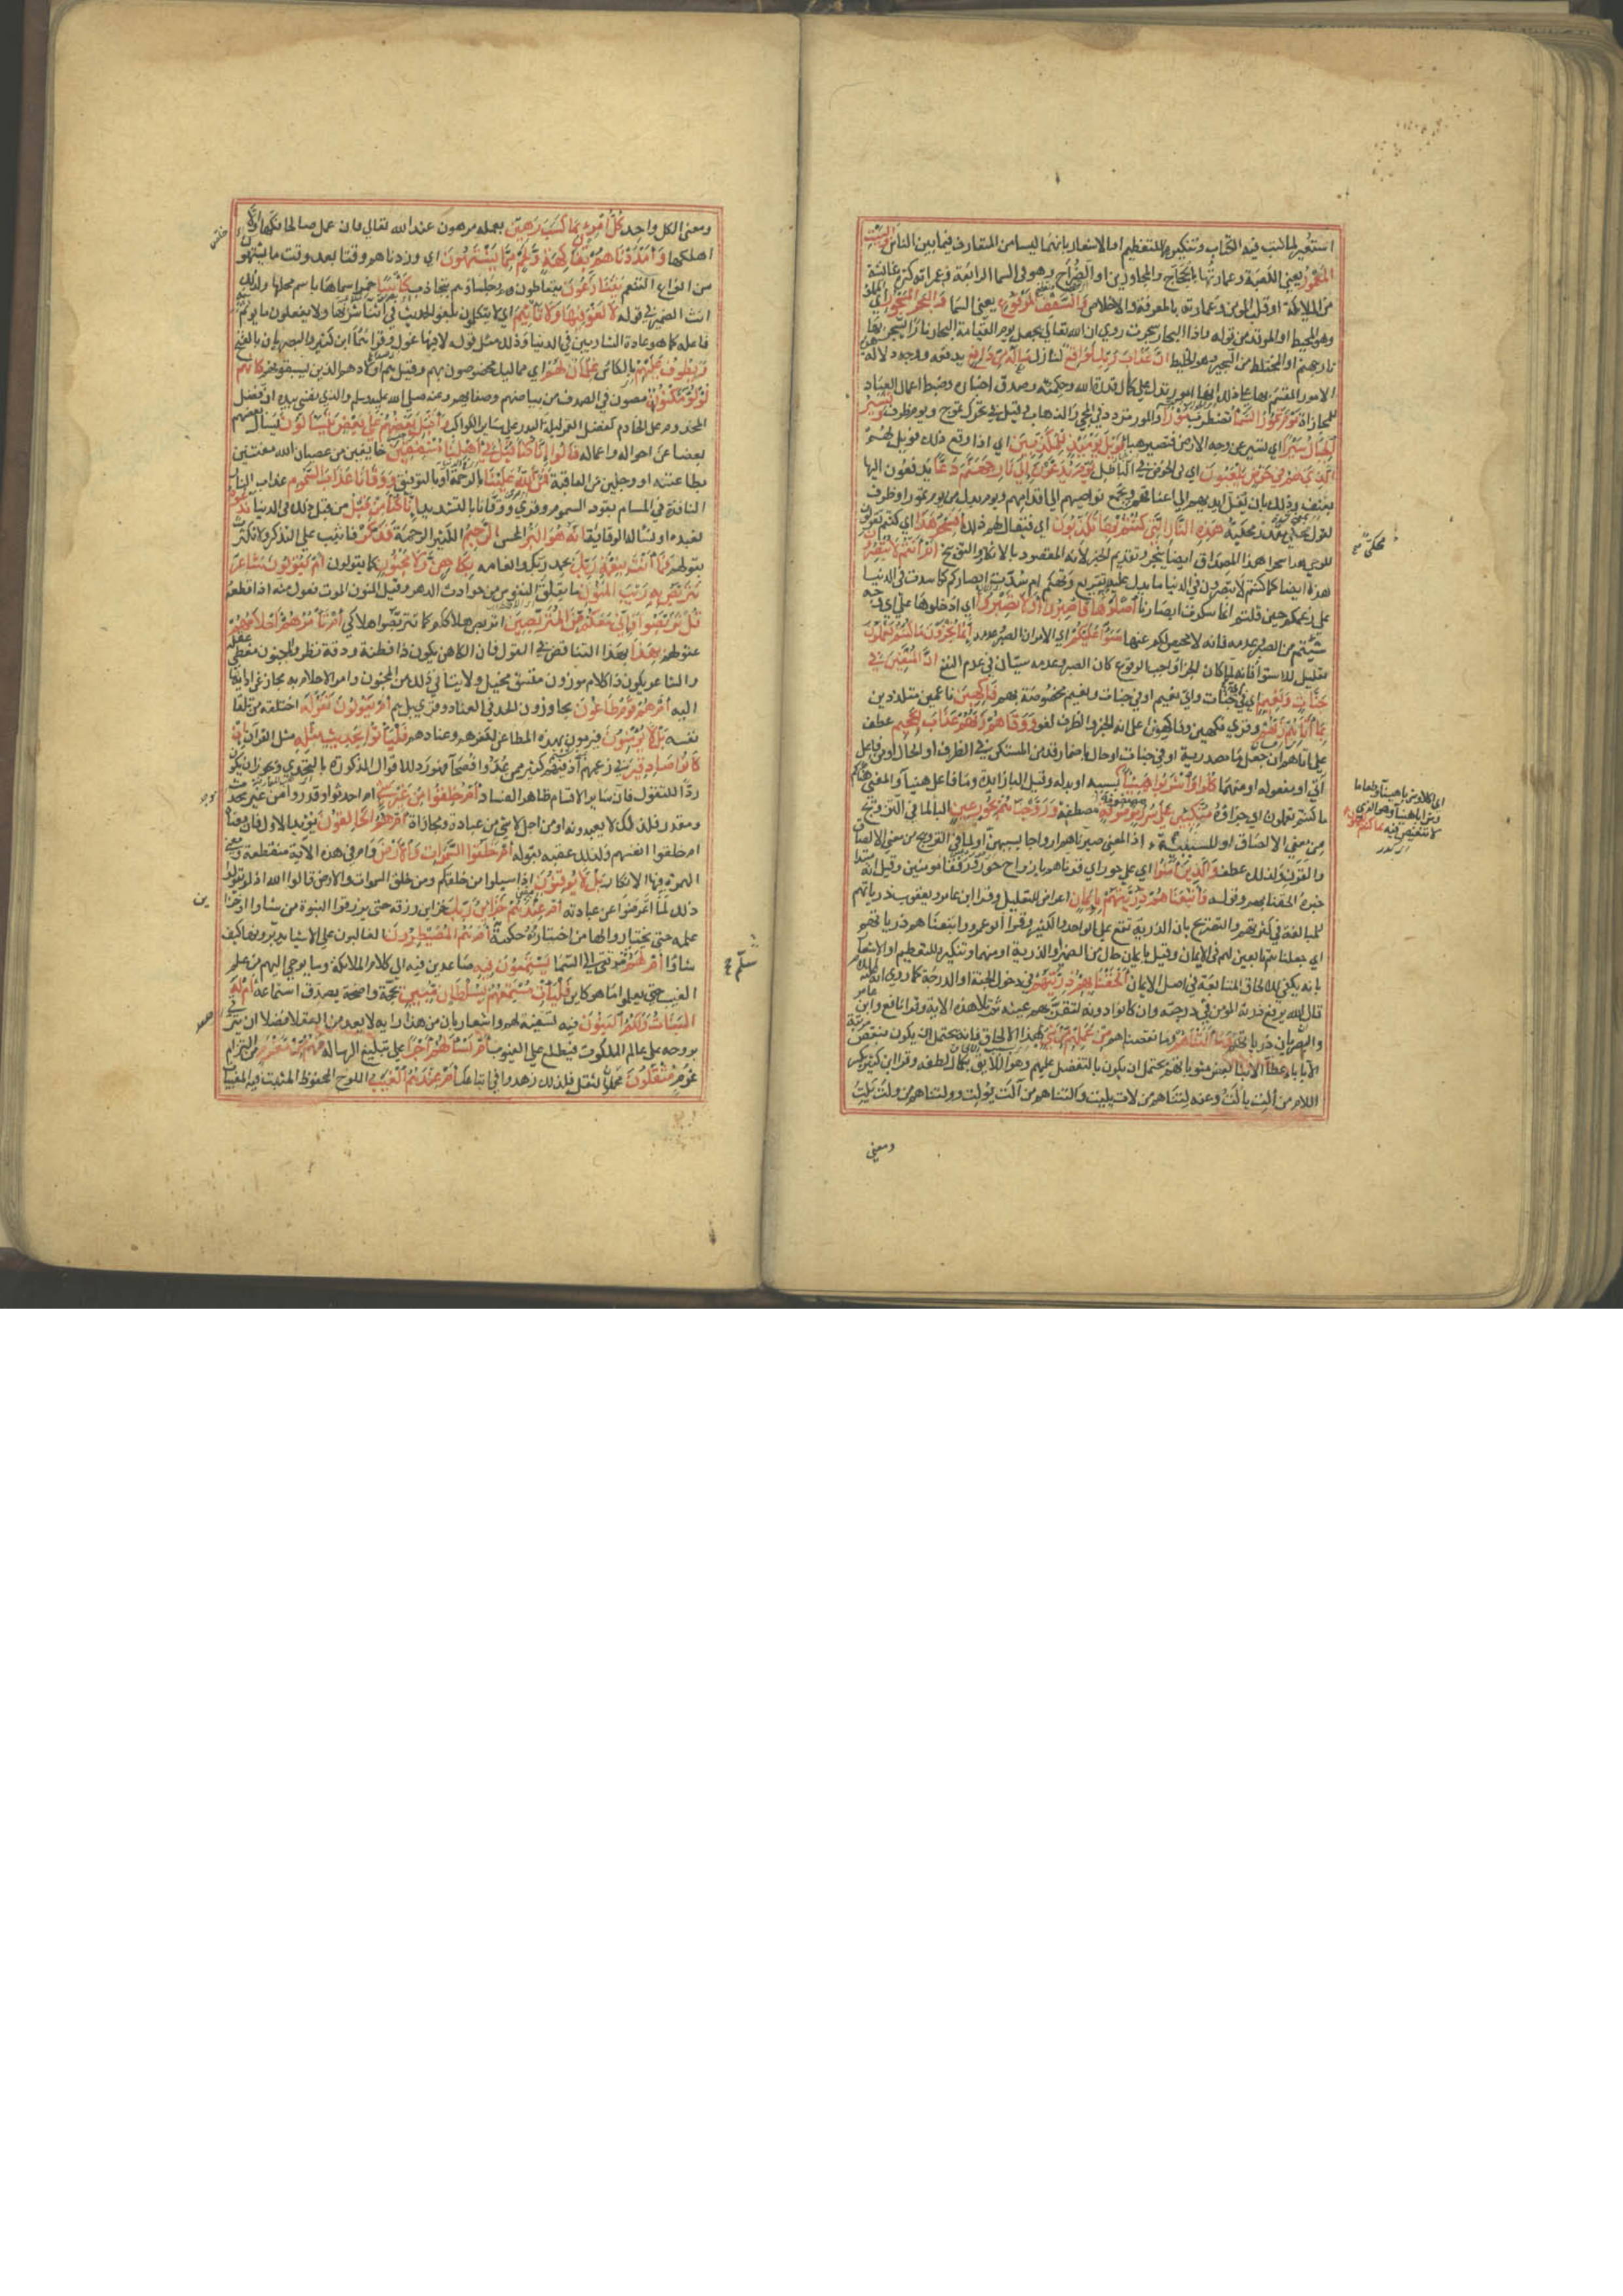 استعير لما كتب فيه الكتاب وتنكيرهما للتعظيم او الاشعار بانهما ليسا من المتعارف فيما بين الناس والبيت
المعمور يعني الكعبة وعمارتها بالحجاج والمجاورين او الضراح وهو في السما الرابعة وعمرانه كثرة غاشيته
من الملائكة او قلب المومن وعمارته بالمعرفة والاخلاص والسقف المرفوع يعني السما والبحر المسجور اي المملو
وهو المحيط او الموقد من قوله واذا البحار سجرت روي ان الله تعالى يجعل يوم القيامة البحار نارا تسجر بها
نار جهنم او المختلط من السجير وهو الخليط ان عذاب ربك لواقع لنازل ماله من دافع يدفعه ووجه دلالة هذه
الامور المقسم بها على ذلك انها امور تدل على كمال قدرة الله وحكمته وصدق اخباره وضبط اعمال العباد
للمجازاة يوم تمور السماء مورا تضطرب والمور تردد في المجي والذهاب وقيل تحرك في تموج ويوم ظرف وتسير
الجبال سيرا اي تسير عن وجه الارض فتصير هباء فويل يومئذ للمكذبين اي اذا وقع ذلك فويل لهم
الذين هم في خوض يلعبون اي في الخوض في الباطل يوم يدعون الى نار جهنم دعا يدفعون اليها
بعنف وذلك بان تغل ايديهم الى اعناقهم وتجمع نواصيهم الى اقدامهم ويوم بدل من يوم تمور او ظرف
لقول مقدر محكية هذه النار التي كنتم بها تكذبون اي فيقال لهم ذلك افسحر هذا اي كنتم تقولون
للوحي هذا سحر افهذا المصداق ايضا سحر وتقديم الخبر لانه المقصود بالانكار والتوبيخ ام انتم لا تبصرون
هذا ايضا كما كنتم لا تبصرون في الدنيا ما يدل عليه وهو تقريع وتهكم ام سدت ابصاركم كما سدت في الدنيا
على زعمكم حين قلتم انما سكرت ابصارنا اصلوها فاصبروا او لا تصبروا اي ادخلوها على اي وجه
شئتم من الصبر وعدمه فانه لا محيص لكم عنها سواء عليكم اي الامران الصبر وعدمه انما تجزون ما كنتم تعملون
تعليل للاستواء فانه لما كان الجزا واجب الوقوع كان الصبر وعدمه سيان في عدم النفع ان المتقين في
جنات ونعيم اي في اية جنات واي نعيم او في جنات ونعيم مخصوصة بهم فاكهين ناعمين متلذذين
بما اتاهم ربهم وقري فكهين وفاكهون على انه الخبر والظرف لغو ووقاهم ربهم عذاب الجحيم عطف
على اتاهم ان جعل ما مصدرية او في جنات او حال باضمار قد من المستكن في الظرف او الحال او من فاعل
اتي او مفعوله او منهما كلوا واشربوا هنيئا بما كنتم
ما كنتم تعملون اي جزاؤه متكئين على سرر مصفوفة مصطفة وزوجناهم بحور عين الباء لما في التزويج
من معنى الالصاق او للسببية اذ المعنى صيرناهم ازواجا بسببهن او لما في التزويج من معنى الالصاق
والقرن ولذلك عطف والذين امنوا اي على حور اي قرناهم بازواج حور ورفقاء مومنين وقيل انه مبتدا
خبره الحقنا بهم وقوله واتبعناهم ذريتهم بايمان اعتراض للتعليل وقرا ابن عامر ويعقوب ذرياتهم
للمبالغة في كثرتهم والتصريح بان الذرية تقع على الواحد والكثير وقرا ابو عمرو واتبعناهم ذرياتهم
اي جعلناهم تابعين لهم في الايمان وقيل بايمان حال من الضمير او الذرية او منهما وتنكيره للتعظيم او الاشعار
بانه يكفي للالحاق المتابعة في اصل الايمان الحقنا بهم ذريتهم في دخول الجنة او الدرجة لما روي انه عليه السلام
قال ان الله يرفع ذرية المومن في درجته وان كانوا دونه لتقر بهم عينه ثم تلا هذه الاية وقرا نافع وابن عامر
والبصريان ذرياتهم وما التناهم وما نقصناهم من عملهم من شيء بهذا الالحاق فانه يحتمل ان يكون بنقص مرتبة
الاباء او باعطاء الابناء بعض مثوباتهم ويحتمل ان يكون بالتفضل عليهم وهو اللايق بكمال لطفه وقرا ابن كثير بكسر
اللام من الت يالت وعنه لتناهم من لات يليت والتناهم من آلت يولت وولتناهم من ولت يلت
ومعنى
محكي
اي اكلا وشربا هنيئا او طعاما
وشرابا هنيئا وهو الذي
لا تنغيص فيه بما كنتم تعملون
ومعنى الكل واحد كل امرئ بما كسب رهين بعمله مرهون عند الله تعالى فان عمل صالحا فكها والا
اهلكها وامددناهم بفاكهة ولحم مما يشتهون اي وزدناهم وقتا بعد وقت ما يشتهون
من انواع التنعم يتنازعون فيها يتعاطون هم وجلساؤهم بتجاذب كاسا خمرا سماها باسم محلها ولذلك
انث الضمير في قوله لا لغو فيها ولا تاثيم اي لا يتكلمون بلغو الحديث في اثناء شربها ولا يفعلون ما يوثم به
فاعله كما هو عادة الشاربين في الدنيا وذلك مثل قوله لا فيها غول وقراهما ابن كثير والبصريان بالفتح
ويطوف عليهم بالكاس غلمان لهم اي مماليك مخصوصون بهم وقيل هم اولادهم الذين سبقوهم كانهم
لؤلؤ مكنون مصون في الصدف من بياضهم وصفايهم وعنه صلى الله عليه وسلم والذي نفسي بيده ان فضل
المخدوم على الخادم كفضل القمر ليلة البدر على ساير الكواكب واقبل بعضهم على بعض يتسالون يسال بعضهم
بعضا عن احواله واعماله قالوا انا كنا قبل في اهلنا مشفقين خايفين من عصيان الله معتنين
بطاعته او وجلين من العاقبة فمن الله علينا بالرحمة او بالتوفيق ووقانا عذاب السموم عذاب النار
النافذة في المسام نفوذ السموم وقري ووقانا بالتشديد انا كنا من قبل من قبل ذلك في الدنيا ندعوه
نعبده او نساله الوقاية انه هو البر المحسن الرحيم الكثير الرحمة فذكر فاثبت على التذكير ولا تكترث
بقولهم فما انت بنعمة ربك بحمد ربك وانعامه بكاهن ولا مجنون كما يقولون ام يقولون شاعر
نتربص به ريب المنون ما يقلق النفوس من حوادث الدهر وقيل المنون الموت فعول من منه اذا قطعه
قل تربصوا فاني معكم من المتربصين اتربص هلاككم كما تتربصون هلاكي ام تامرهم احلامهم
عقولهم بهذا بهذا التناقض في القول فان الكاهن يكون ذا فطنة ودقة نظر والمجنون مغطى عقله
والشاعر يكون ذا كلام موزون متسق مخيل ولا يتاتي ذلك من المجنون وامر الاحلام به مجاز عن ادايها
اليه ام هم قوم طاغون مجاوزون الحد في العناد وقري بل هم ام يقولون تقوله اختلقه من تلقاء
نفسه بل لا يؤمنون فيرمون بهذه المطاعن لكفرهم وعنادهم فلياتوا بحديث مثله مثل القران ان
كانوا صادقين في زعمهم اذ فيهم كثير ممن عدوا فصحاء فهو رد للاقوال المذكورة بالتحدي ويجوز ان يكون
ردا للتقول فان ساير الاقسام ظاهر الفساد ام خلقوا من غير شيء ام احدثوا وقدروا من غير محدث
ومقدر فلذلك لا يعبدونه او من اجل لا شيء من عبادة ومجازاة ام هم الخالقون يؤيد الاول فان معناه
ام خلقوا انفسهم ولذلك عقبه بقوله ام خلقوا السموات والارض وام في هذه الاية منقطعة ومعنى
الهمزة فيها الانكار بل لا يوقنون اذا سيلوا من خلقكم ومن خلق السموات والارض قالوا الله اذ لو ايقنوا
ذلك لما اعرضوا عن عبادته ام عندهم خزائن ربك خزاين رزقه حتى يرزقوا النبوة من شاوا او خزاين
علمه حتى يختاروا لها من اختارته حكمته ام هم المصيطرون الغالبون على الاشياء يدبرونها كيف
شاوا ام لهم سلم مرتقى الى السماء يستمعون فيه صاعدين فيه الى كلام الملائكة وما يوحى اليهم من علم
الغيب حتى يعلموا ما هو كاين فليات مستمعهم بسلطان مبين بحجة واضحة يصدق استماعه ام له
البنات ولكم البنون فيه تسفيه لهم واشعار بان من هذا رايه لا يعد من العقلا فضلا ان يترقى
بروحه على عالم الملكوت فيطلع على الغيوب ام تسالهم اجرا على تبليغ الرسالة فهم من مغرم من التزام
غرم مثقلون محملون الثقل فلذلك زهدوا في اتباعك ام عندهم الغيب اللوح المحفوظ المثبت فيه المغيبات
سلم